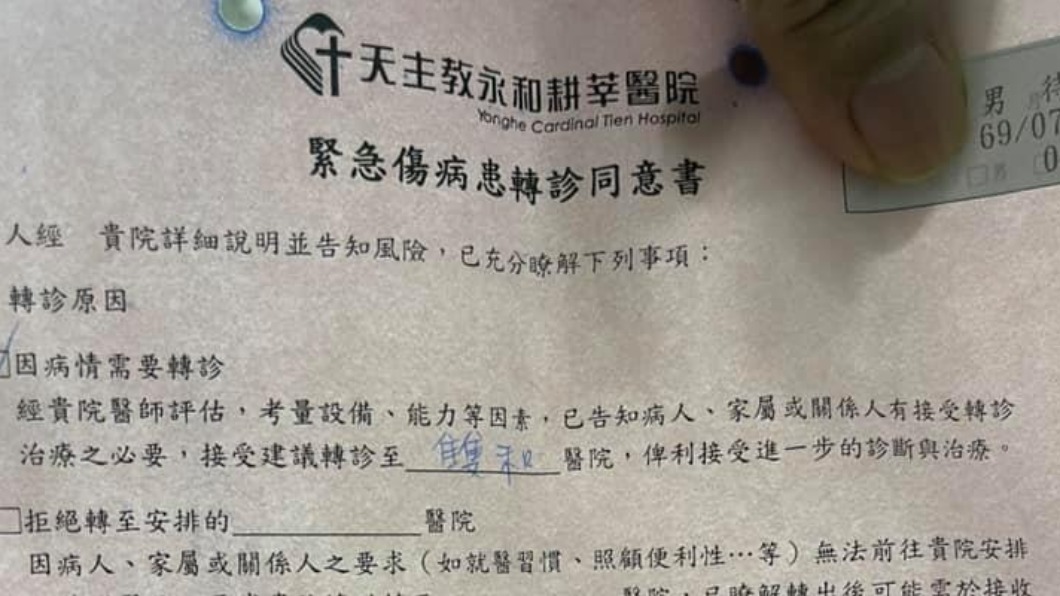 天主教永和耕莘醫院
Yonghe Cardinal Tien Hospital
緊急傷病患轉診同意書
男
69/07
0
人經 貴院詳細說明並告知風險，已充分瞭解下列事項：
轉診原因
因病情需要轉診
經貴院醫師評估，考量設備、能力等因素，已告知病人、家屬或關係人有接受轉診
治療之必要，接受建議轉診至 雙和 醫院，俾利接受進一步的診斷與治療。
□拒絕轉至安排的 醫院
因病人、家屬或關係人之要求（如就醫習慣、照顧便利性…等）無法前往貴院安排
醫院，已瞭解轉出後可能需於接收